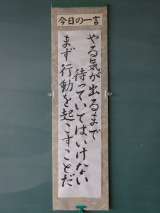 今日の一言
やる気が出るまで
待っていてはいけない
まず行動を起こすことだ